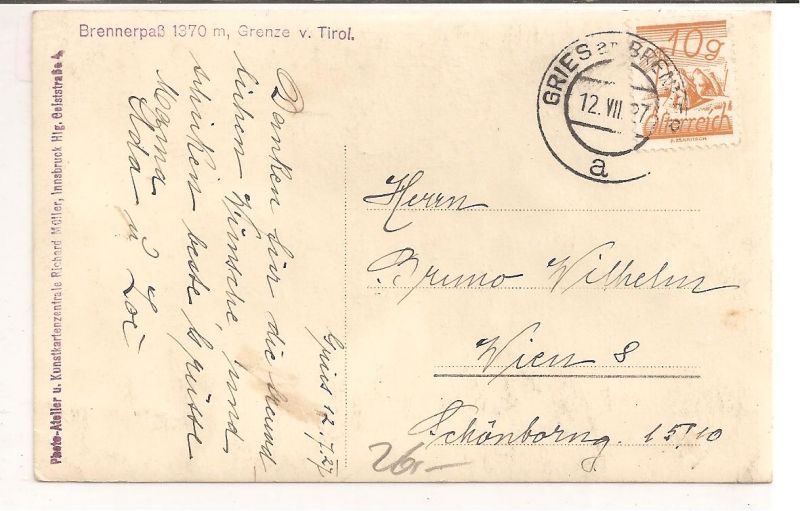 Brennerpaß 1370 m, Grenze v. Tirol.
Photo-Atelier u. Kunstkartenzentrale Richard Müller, Innsbruck Hlg. Geiststraße 4.
Gries 12./7.27
Danken für die freund
lichen Wünsche und
schicken beste Grüsse
Mama
Elda u. Loi
10g
Österreich
GRIES am BRENNER
12. VII. 27
a
Herrn
Bruno Wilhelm
Wien 8
Schönborng. 15/10
26.-